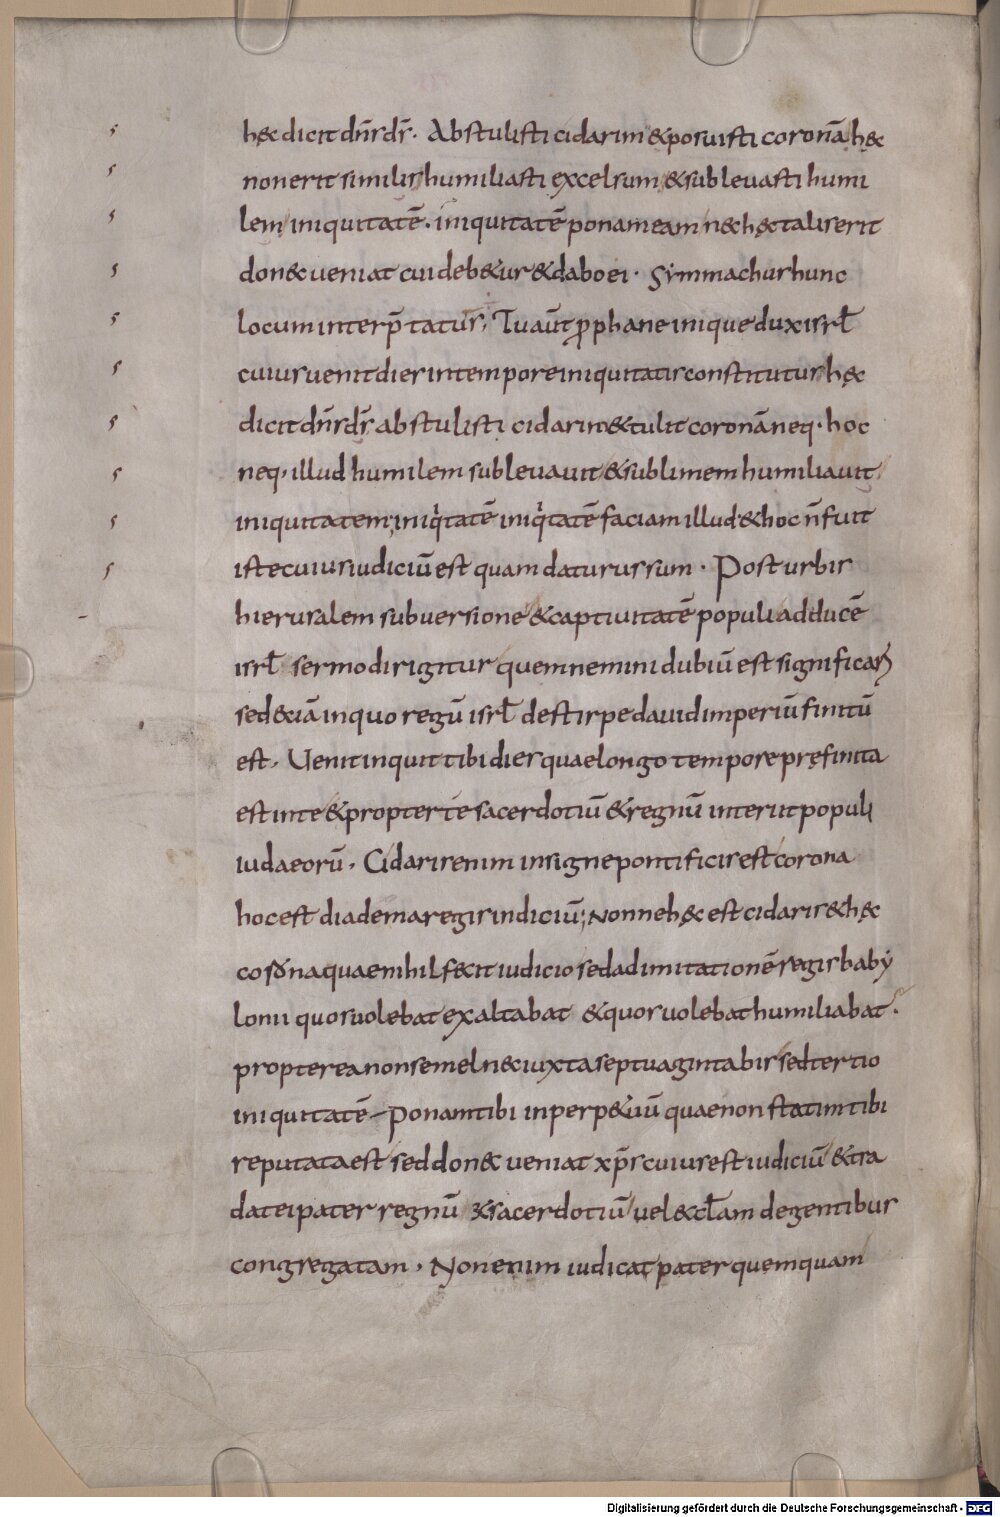 hęc dicit dn̄s ds̄. Abstulisti cidarim & posuisti coronā hęc
non erit similis humiliasti excelsum & sublevasti humi
lem iniquitatē. iniquitatē ponam eam nec hęc talis erit
donec veniat cui deb&ur & dabo ei. Symmachus hunc
locum interp̄tatus; Tu aūt ꝓphane inique dux isrl̄
cuius venit dies in tempore iniquitatis constitutus hęc
dicit dn̄s ds̄ abstulisti cidarim & tulit coronā neq. hoc
neq. illud humilem sublevavit & sublimem humiliavit
iniquitatem; iniq̇tatē iniq̇tatē faciam illud & hoc n̄ fuit
iste cuius iudiciū est quam daturus sum. Post urbis
hierusalem subversione & captivitatē populi ad ducē
isrl̄ sermo dirigitur quem nemini dubiū est significaɼ
sed &iā in quo regū isrl̄ de stirpe david imperiū finitū
est. Venit inquit tibi dies quae longo tempore pręfinita
est in te & propter te sacerdotiū & regnū interiit populi
iudaeorū. Cidaris enim insigne pontificis est corona
hoc est diadema regis indiciū; Nonne hęc est cidaris & hęc
corona quae nihil fecit iudicio sed ad imitationē regis baby
lonii quos volebat exaltabat & quos volebat humiliabat.
propterea non semel nec iuxta septuaginta bis sed tertio
iniquitatē. Ponam tibi in perp&uū quae non statim tibi
reputata est sed donec veniat xp̄s cuius est iudiciū & tra
dat ei pater regnū & sacerdotiū vel eccl̄am de gentibus
congregatam. Non enim iudicat pater quemquam
Digitalisierung gefördert durch die Deutsche Forschungsgemeinschaft - DFG